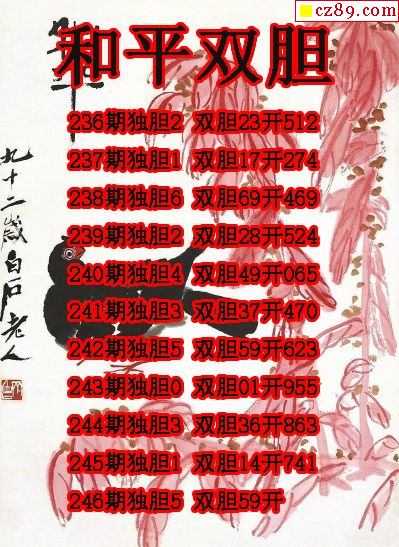 cz89.com
和平双胆
236期独胆2 双胆23开512
237期独胆1 双胆17开274
238期独胆6 双胆69开469
239期独胆2 双胆28开524
240期独胆4 双胆49开065
241期独胆3 双胆37开470
242期独胆5 双胆59开623
243期独胆0 双胆01开955
244期独胆3 双胆36开863
245期独胆1 双胆14开741
246期独胆5 双胆59开
九十二岁白石老人